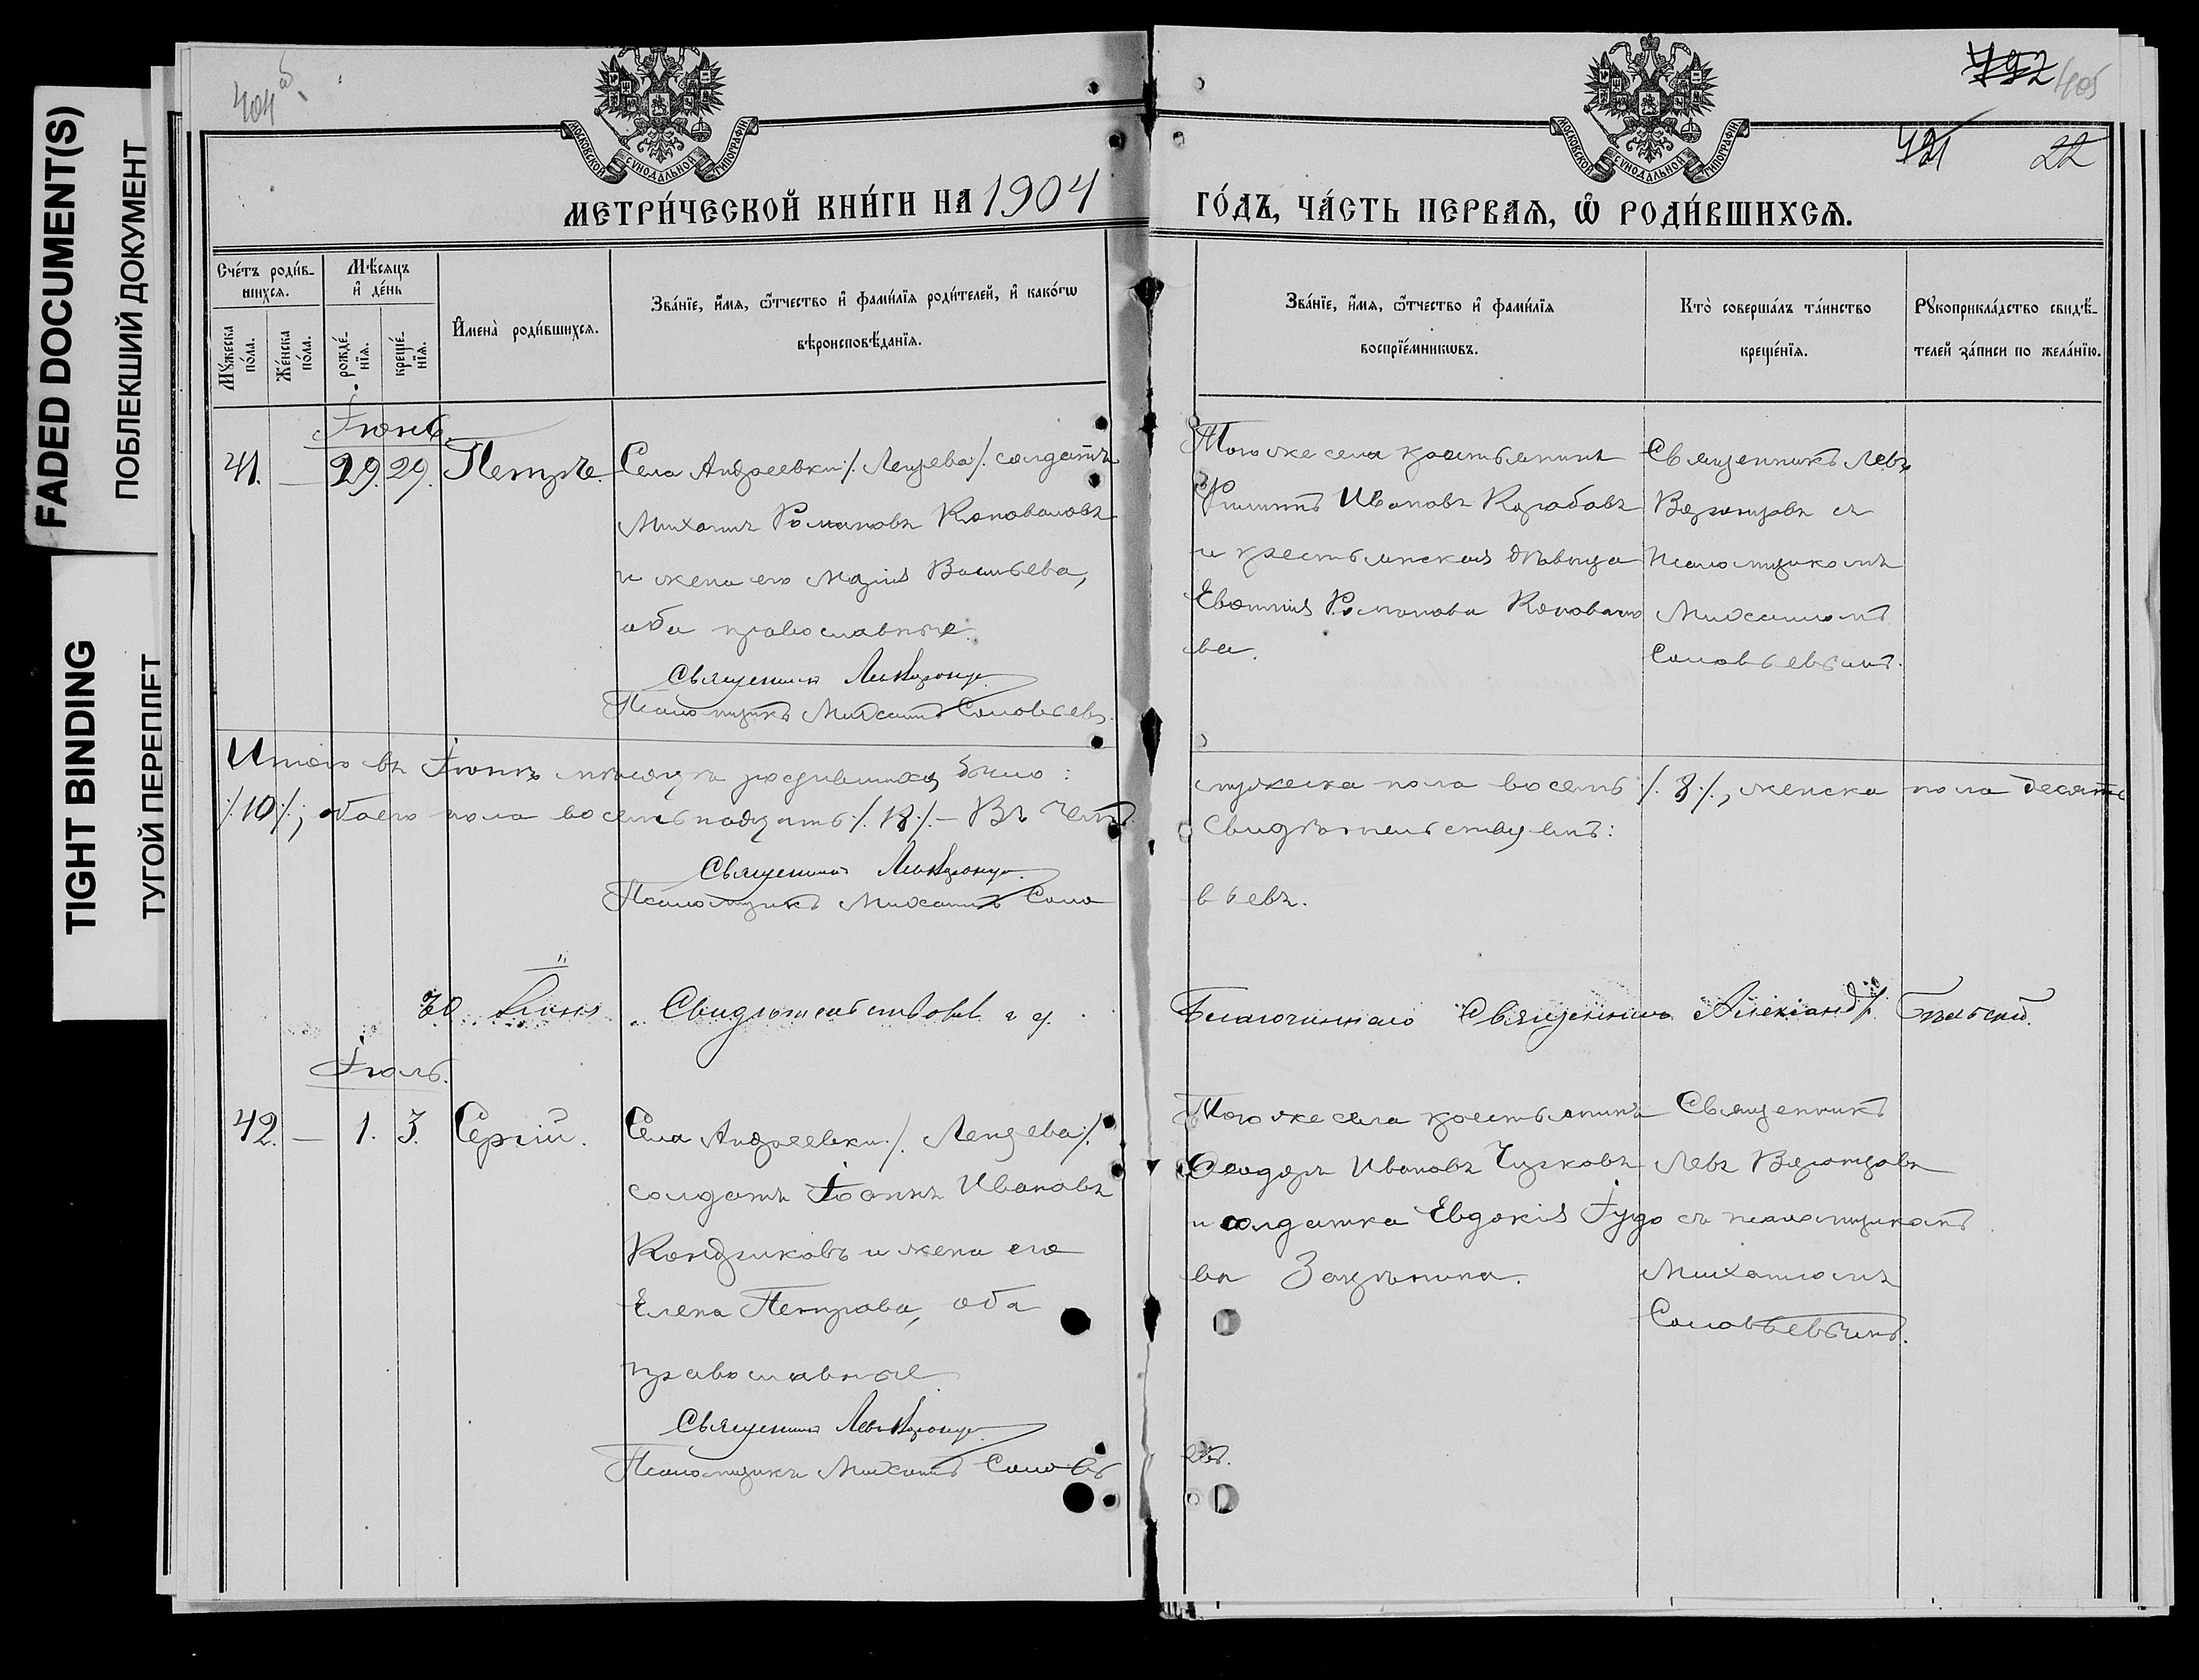 FADED DOCUMENT(S)
ПОБЛЕКШИЙ ДОКУМЕНТ
TIGHT BINDING
ТУГОЙ ПЕРЕПЛЕТ
404 об
792 405
421 22
МОСКОВСКОЙ СУНОДАЛЬНОЙ ТИПОГРАФІИ
МОСКОВСКОЙ СУНОДАЛЬНОЙ ТИПОГРАФІИ
МЕТРИ́ЧЕСКОЙ КНИ́ГИ НА 1904
ГО́ДЪ, ЧА́СТЬ ПЕРВАѦ, Ѡ҆ РОДИ́ВШИХСѦ.
Сче́тъ роди́в-
шихсѧ.
Мѣ́сѧцъ
и҆ де́нь
Мꙋжеска
по́ла.
Же́нска
по́ла.
рожде́-
нїѧ.
креще́-
нїѧ.
И҆мена̀ роди́вшихсѧ.
Зва́нїе, и҆́мѧ, ѻ҆́тчество и҆ фами́лїѧ роди́телей, и҆ како́гѡ
вѣроисповѣ́данїѧ.
Зва́нїе, и҆́мѧ, ѻ҆́тчество и҆ фами́лїѧ
воспрїе́мникѡвъ.
Кто̀ соверша́лъ та́инство
креще́нїѧ.
Рꙋкоприкла́дство свидѣ́-
телей за́писи по жела́нїю.
Іюнь.
41. — 29. 29. Петръ.
Села Андреевки /. Лещева /. солдатъ
Михаилъ Романовъ Коноваловъ
и жена его Марія Васильева,
оба православные.
Священникъ Левъ
Псаломщикъ Михаилъ Соловьевъ.
Того же села крестьянинъ
Филиппъ Ивановъ
и крестьянская дѣвица
Романова Коновало
ва.
Священникъ Левъ
съ
псаломщикомъ
Михаиломъ
Соловьевымъ.
Итого въ Іюнѣ мѣсяцѣ родившихся было:
мужеска пола восемь /. 8 /., женска пола десять
/. 10 /., обоего пола восемьнадцать /. 18 /. – Въ чемъ
свидѣтельствуемъ:
Священникъ Левъ
Псаломщикъ Михаилъ Соло
вьевъ.
30 Іюня Свидѣтельствовалъ
Благочиннаго Священникъ Александръ
Іюль.
42. — 1. 3. Сергій.
Села Андреевки /. Лещева /.
солдатъ Іоаннъ Ивановъ
и жена его
Елена Петрова, оба
православные
Священникъ Левъ
Псаломщикъ Михаилъ Соловь
евъ.
Того же села крестьянинъ
Ѳеодоръ Ивановъ
и солдатка Евдокія
ва
Священникъ
Левъ
съ псаломщикомъ
Михаиломъ
Соловьевымъ.